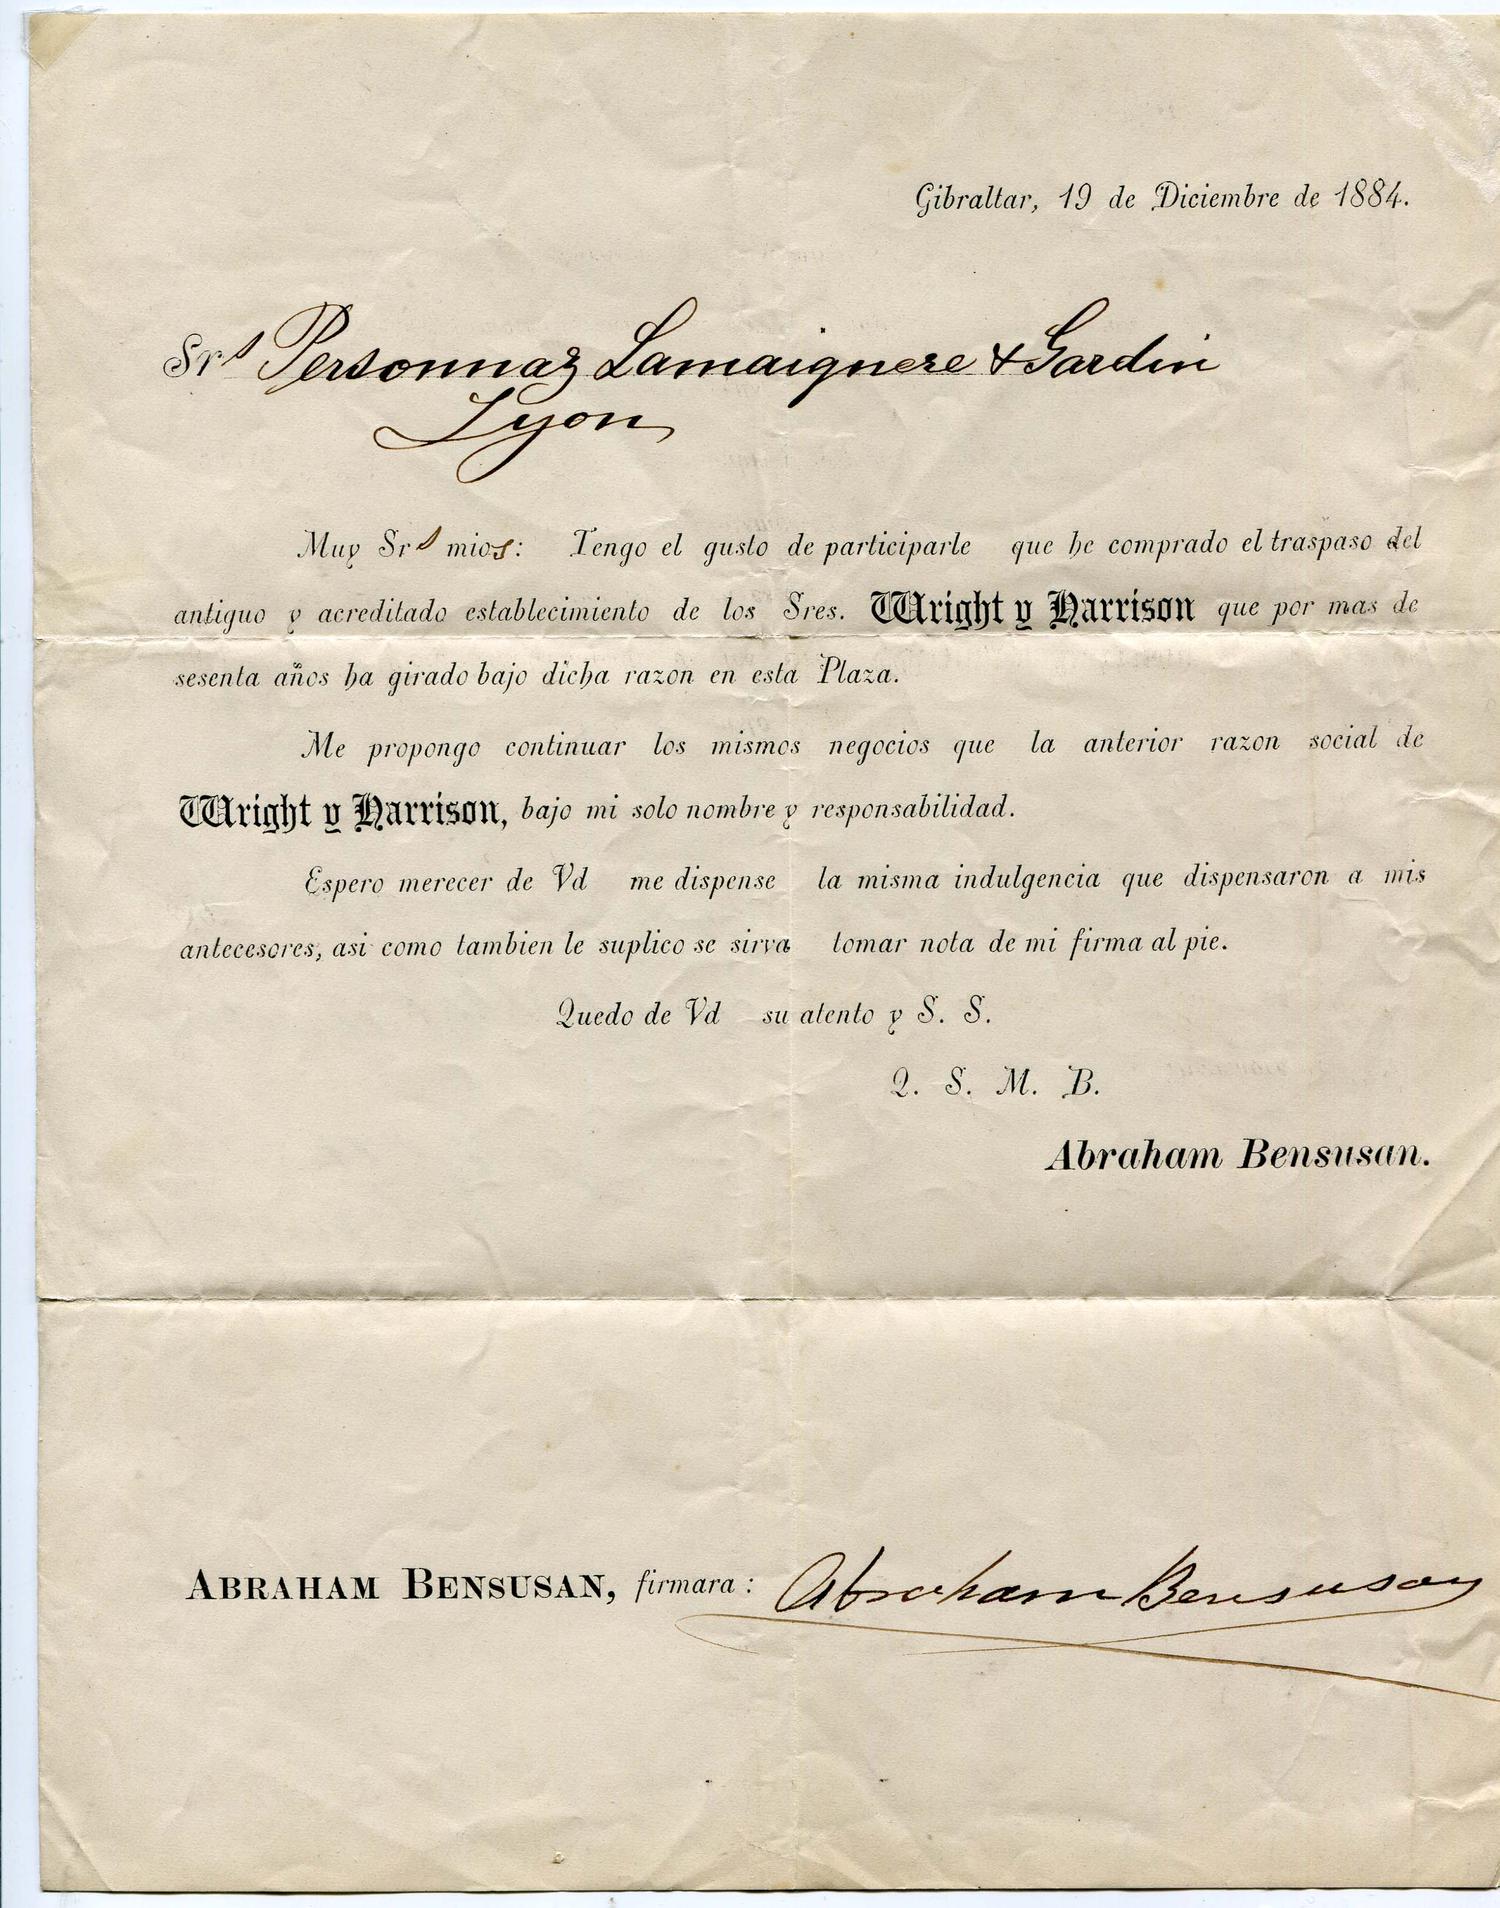 Gibraltar, 19 de Diciembre de 1884.
Srs Personnaz Lamaignere & Gardin
Lyon
Muy Srs mios: Tengo el gusto de participarle que he comprado el traspaso del
antiguo y acreditado establecimiento de los Sres. Wright y Harrison que por mas de
sesenta años ha girado bajo dicha razon en esta Plaza.
Me propongo continuar los mismos negocios que la anterior razon social de
Wright y Harrison, bajo mi solo nombre y responsabilidad.
Espero merecer de Vd me dispense la misma indulgencia que dispensaron a mis
antecesores, asi como tambien le suplico se sirva tomar nota de mi firma al pie.
Quedo de Vd su atento y S. S.
Q. S. M. B.
Abraham Bensusan.
ABRAHAM BENSUSAN, firmara : Abraham Bensusan